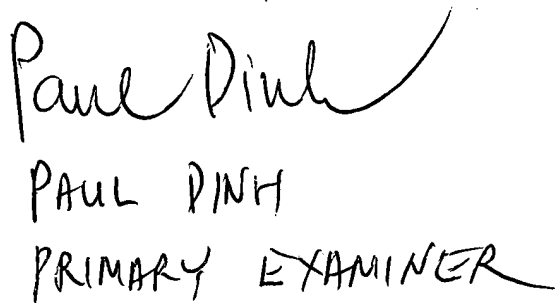 Paul Dinh
PAUL DINH
PRIMARY EXAMINER